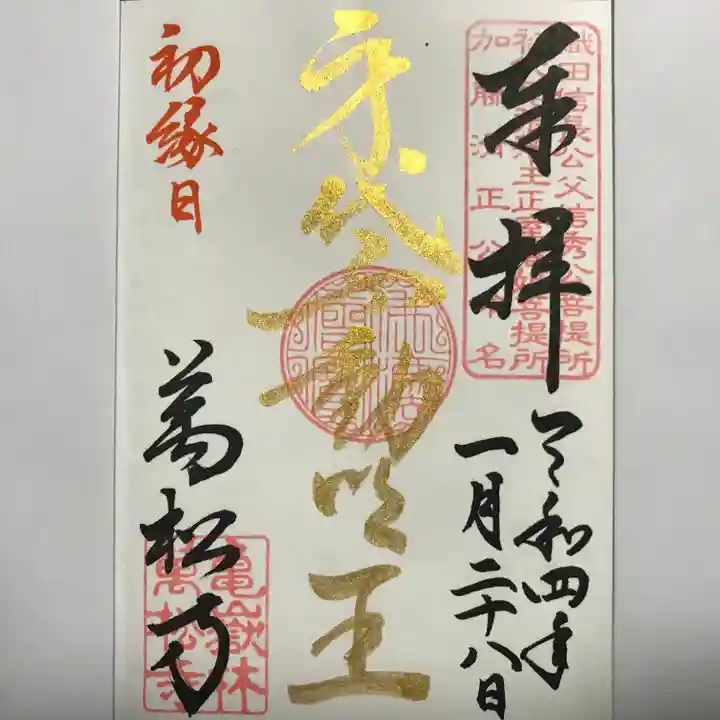 奉拝
令和四年
一月二十八日
織田信長公父信秀公菩提所
加藤清正公
名
身代不動明王
初縁日
萬松寺
亀嶽林
萬松寺